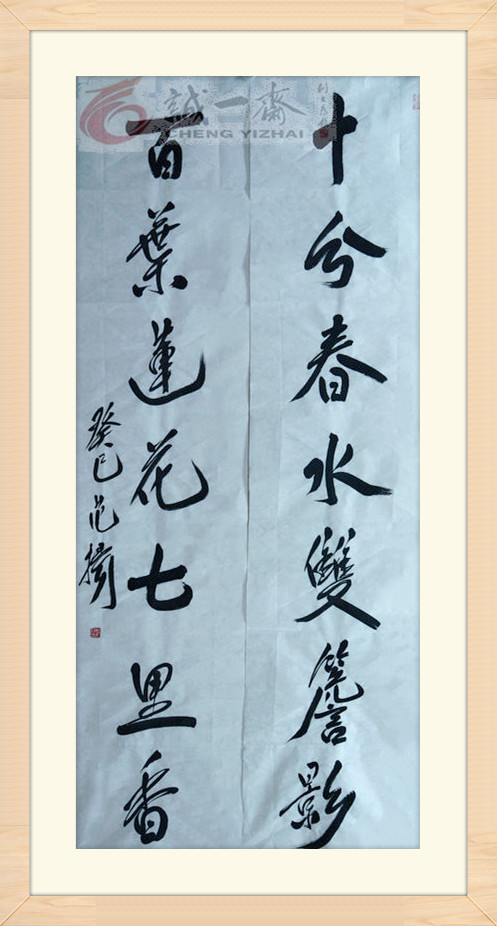 十分春水雙簷影
百葉蓮花七里香
癸巳范
誠一齋
CHENG YIZHAI